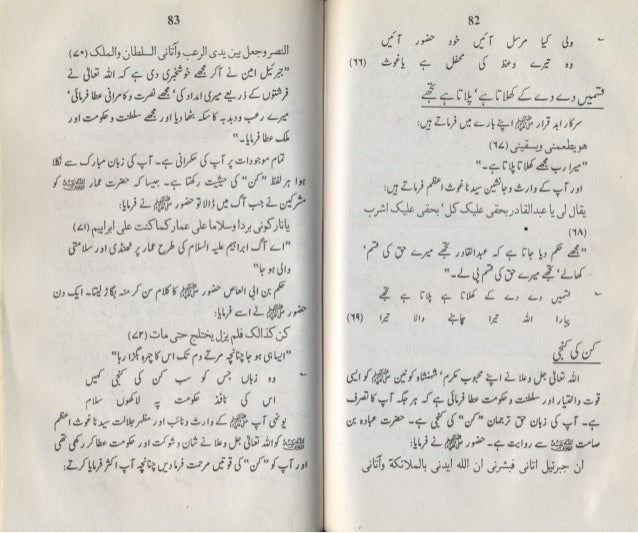 82
ولی کیا مرسل آئیں خود حضور آئیں
وہ تیرے وعظ کی محفل ہے یاغوث (٦٦)
قسمیں دے دے کے کھلاتا ہے' پلاتا ہے تجھے
سرکار ابد قرار ﷺ اپنے بارے میں فرماتے ہیں:
هو يطعمني ويسقيني (٦٧)
"میرا رب مجھے کھلاتا پلاتا ہے۔"
اور آپ کے وارث و جانشین سیدنا غوث اعظم فرماتے ہیں:
يقال لي يا عبدالقادر بحقي عليك كل' بحقي عليك اشرب
(٦٨)
"مجھے حکم دیا جاتا ہے کہ عبدالقادر تجھے میرے حق کی قسم'
کھالے' تجھے میرے حق کی قسم پی لے۔"
قسمیں دے دے کے کھلاتا ہے پلاتا ہے تجھے
پیارا اللہ تیرا چاہنے والا تیرا (٦٩)
کن کی کنجی
اللہ تعالیٰ جل وعلا نے اپنے محبوب مکرم' شہنشاہ کونین ﷺ کو ایسی
قوت واختیار اور سلطنت و حکومت عطا فرمائی ہے کہ ہر جگہ آپ کا تصرف
ہے۔ آپ کی زبان حق ترجمان "کن" کی کنجی ہے۔ حضرت عبادہ بن
صامت سے روایت ہے۔ حضور ﷺ نے فرمایا:
ان جبرئيل اتاني فبشرني ان الله ايدني بالملائكة وأتاني
83
النصر وجعل بين يدي الرعب وأتاني السلطان والملك (٧٠)
"جبرئیل امین نے آکر مجھے خوشخبری دی ہے کہ اللہ تعالیٰ نے
فرشتوں کے ذریعے میری امداد کی' مجھے نصرت و کامرانی عطا فرمائی'
میرے رعب و دبدبہ کا سکہ بٹھا دیا اور مجھے سلطنت و حکومت اور
ملک عطا فرمایا۔"
تمام موجودات پر آپ کی حکمرانی ہے۔ آپ کی زبان مبارک سے نکلا
ہوا ہر لفظ "کن" کی حیثیت رکھتا ہے۔ جیسا کہ حضرت عمار کو
مشرکین نے جب آگ میں ڈالا تو حضور ﷺ نے فرمایا:
يا نار كوني بردا وسلاما على عمار كما كنت على ابراهيم (٧١)
"اے آگ ابراہیم علیہ السلام کی طرح عمار پر ٹھنڈی اور سلامتی
والی ہو جا"
حکم بن ابی العاص حضور ﷺ کا کلام سن کر منہ بگاڑ لیتا۔ ایک دن
حضور ﷺ نے اسے فرمایا:
كن كذالك فلم يزل يختلج حتى مات (٧٢)
"ایسا ہی ہو جا چنانچہ مرتے دم تک اس کا چہرہ بگڑا رہا"
وہ زباں جس کو سب کن کی کنجی کہیں
اس کی نافذ حکومت پہ لاکھوں سلام
یونہی آپ ﷺ کے وارث و نائب اور مظہر جلالت سیدنا غوث اعظم
کو اللہ تعالیٰ جل وعلا نے شان و شوکت اور حکومت عطا کر رکھی تھی
اور آپ کو "کن" کی قوتیں مرحمت فرما دیں چنانچہ آپ اکثر فرمایا کرتے: